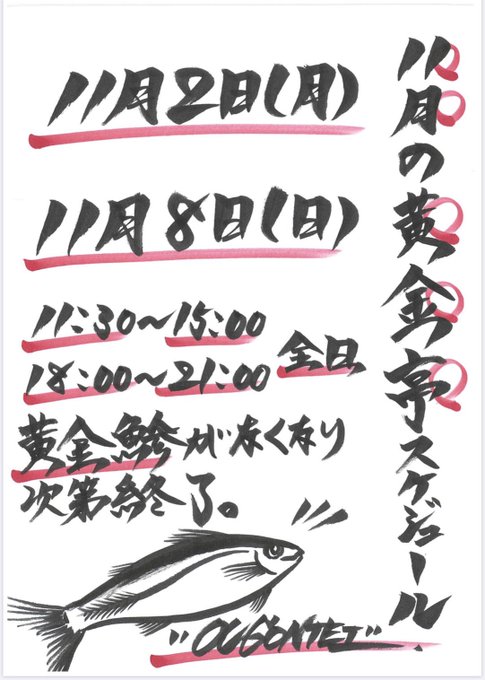 11月の黄金亭スケジュール
11月2日(月)
11月8日(日)
11:30〜15:00
18:00〜21:00
全日
黄金鯵がなくなり
次第終了。
"OUGONTEI"